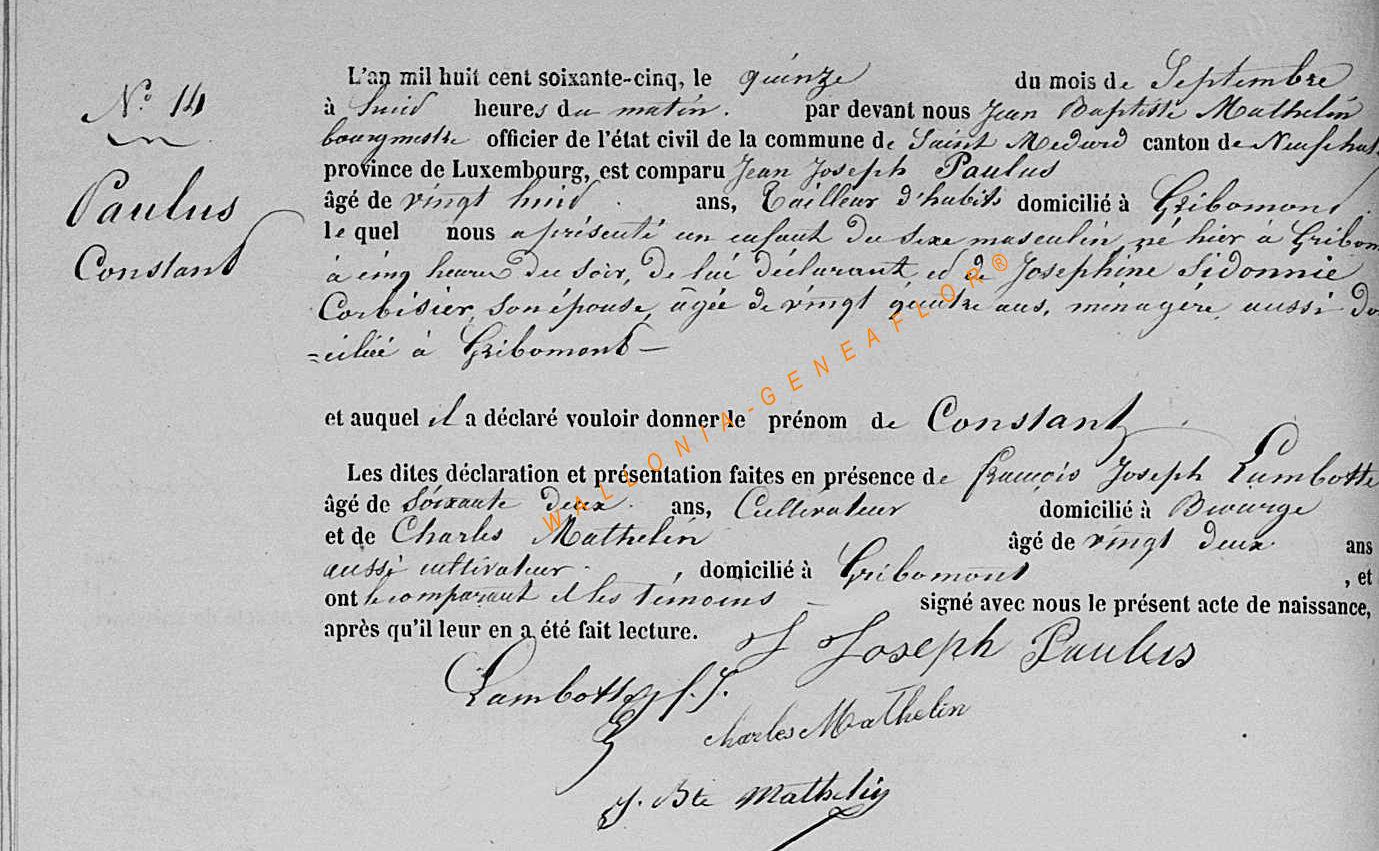 N.° 14
Paulus
Constant
L'an mil huit cent soixante-cinq, le quinze du mois de Septembre
à huit heures du matin. par devant nous Jean Baptiste Mathelin
bourgmestre officier de l'état civil de la commune de Saint Medard canton de Neufchat
province de Luxembourg, est comparu Jean Joseph Paulus
âgé de vingt huit ans, Tailleur d'habits domicilié à Gribomont
le quel nous a présenté un enfant du sexe masculin, né hier à Gribom
à cinq heures du soir, de lui déclarant et de Josephine Sidonnie
Corbisier, son épouse, âgée de vingt quatre ans, ménagère, aussi do
=ciliée à Gribomont —
et auquel il a déclaré vouloir donner le prénom de Constant
Les dites déclaration et présentation faites en présence de François Joseph Lambotte
âgé de soixante deux ans, Cultivateur domicilié à
et de Charles Mathelin âgé de vingt deux ans
aussi cultivateur, domicilié à Gribomont, et
ont le comparant et les témoins — signé avec nous le présent acte de naissance,
après qu'il leur en a été fait lecture.
J Joseph Paulus
Lambotte f. J.
Charles Mathelin
J. Bte Mathelin
WALLONIA-GENEAFLOR®